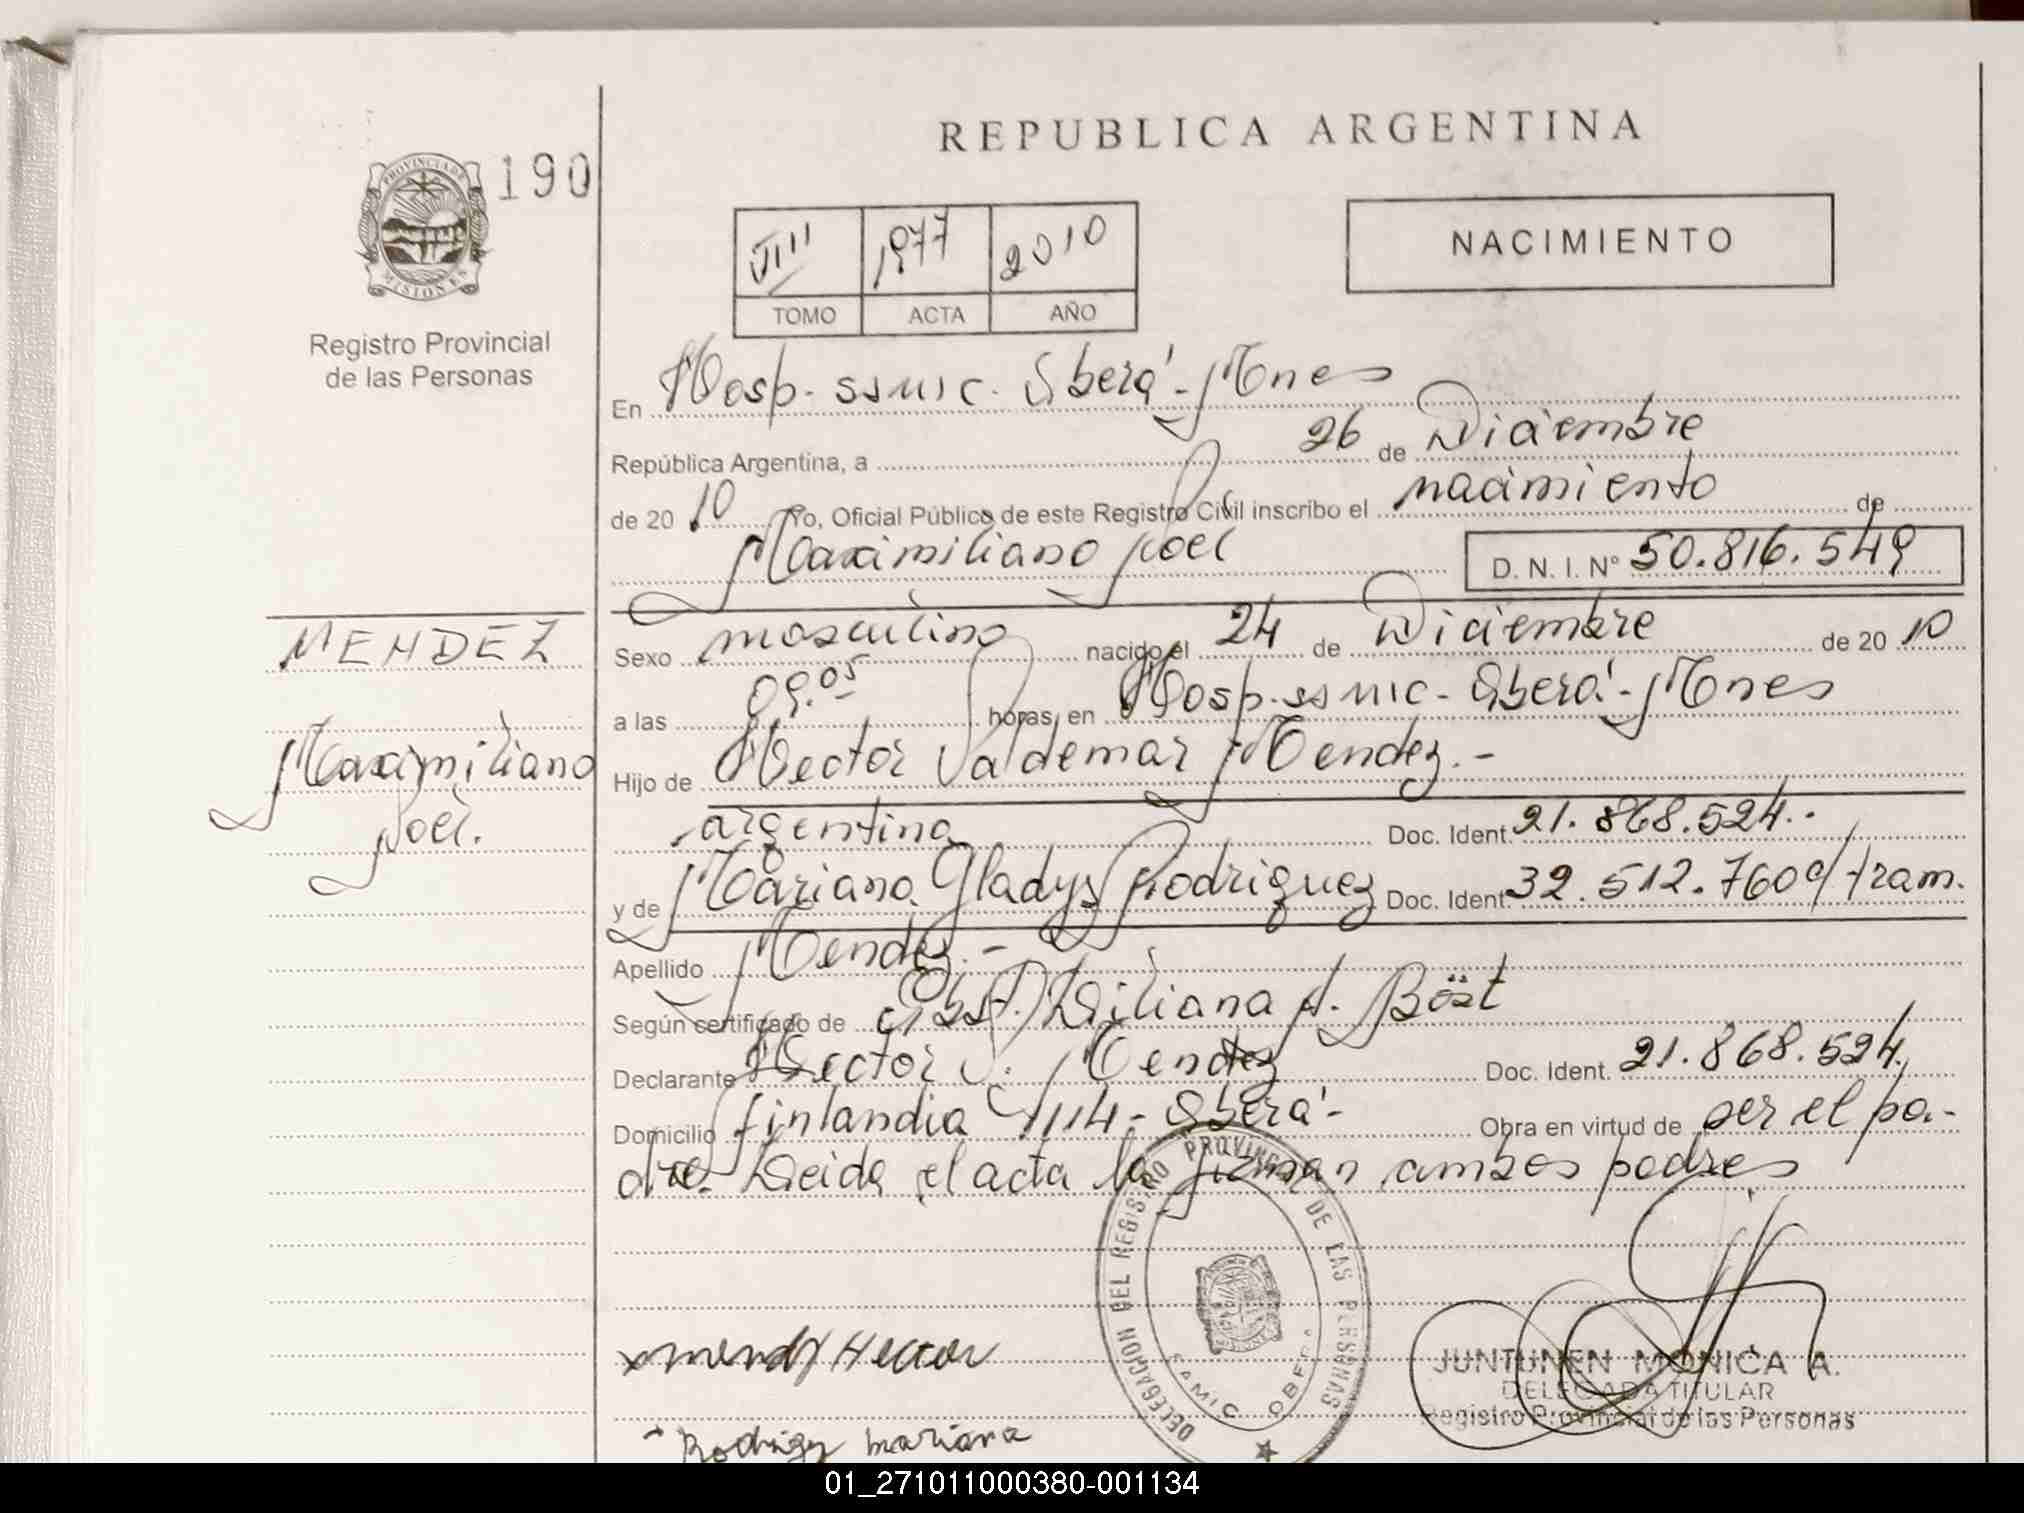 REPUBLICA ARGENTINA
PROVINCIA DE MISIONES
190
VIII 1977 2010
TOMO ACTA AÑO
NACIMIENTO
Registro Provincial
de las Personas
En Hosp. ssmic. Oberá - Mnes
República Argentina, a 26 de Diciembre
de 20 10 Yo, Oficial Público de este Registro Civil inscribo el nacimiento de
Maximiliano Joel D. N. I. Nº 50.816.549
MENDEZ
Maximiliano
Joel.
Sexo masculino nacido el 24 de Diciembre de 20 10
a las 09.05 horas, en Hosp. ssmic - Oberá - Mones
Hijo de Hector Valdemar Mendez.-
argentino Doc. Ident. 21.868.524.
y de Mariana Gladys Rodriguez Doc. Ident. 32.512.760 c/tram.
Apellido Mendez.-
Según certificado de Obst. Liliana A. Böst
Declarante Hector V. Mendez Doc. Ident. 21.868.524.
Domicilio finlandia 1114 - Oberá - Obra en virtud de ser el pa-
dre. Leida el acta la firman ambos padres
DELEGACION DEL REGISTRO PROVINCIAL DE LAS PERSONAS
SAMIC OBERA
Hector
Mariana
JUNTUNEN MONICA A.
DELEGADA TITULAR
Registro Provincial de las Personas
01_271011000380-001134